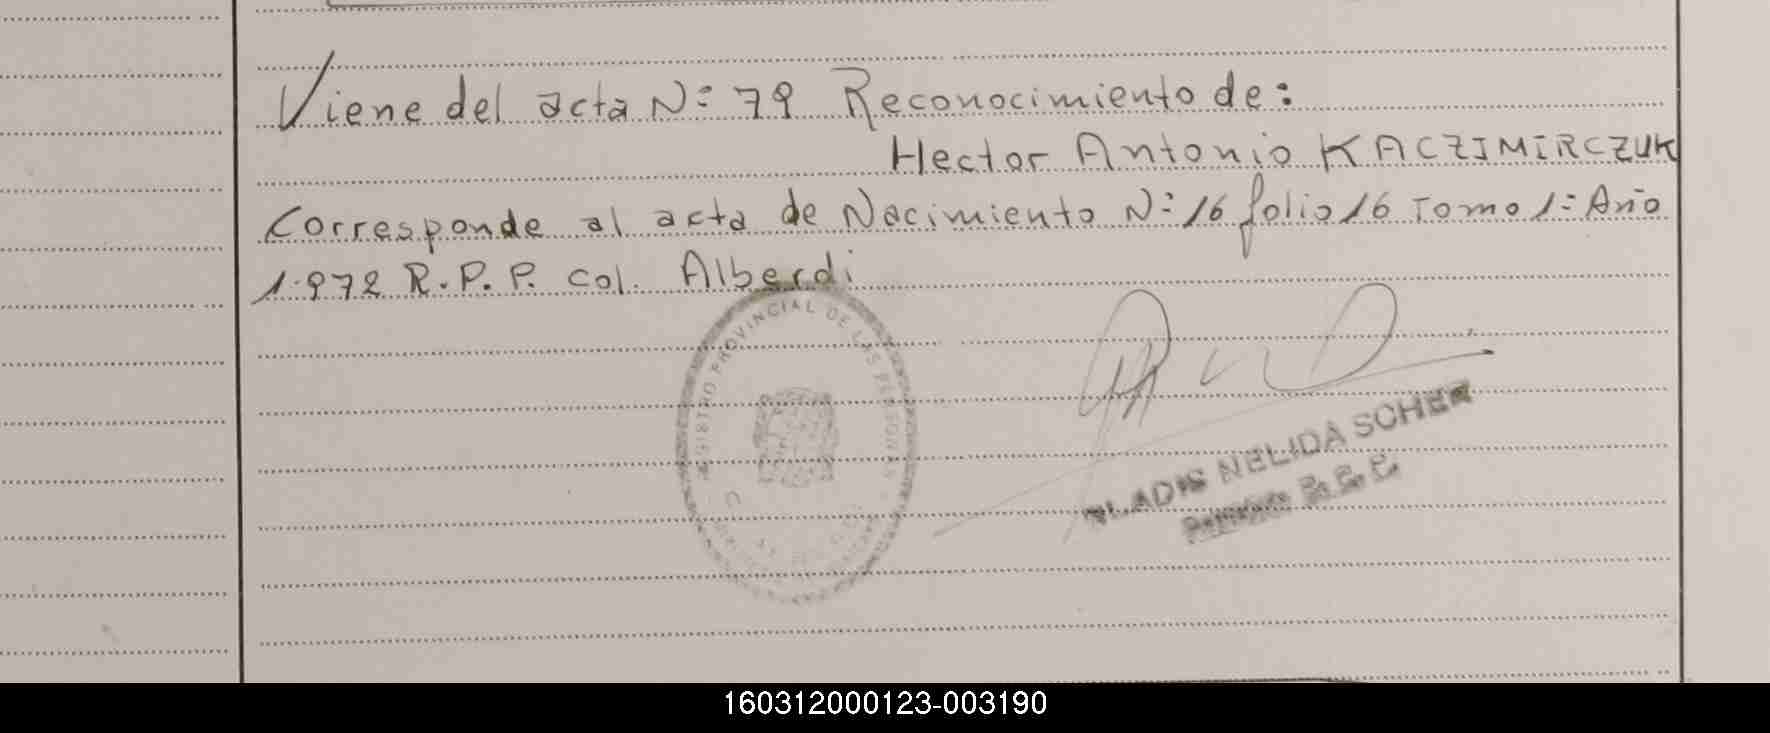 Viene del acta N: 79 Reconocimiento de:
Hector Antonio KACZIMIRCZUK
Corresponde al acta de Nacimiento N: 16 folio 16 Tomo 1: Año
1.972 R.P.P. Col. Alberdi
REGISTRO PROVINCIAL DE LAS PERSONAS
GLADIS NELIDA SCHER
160312000123-003190